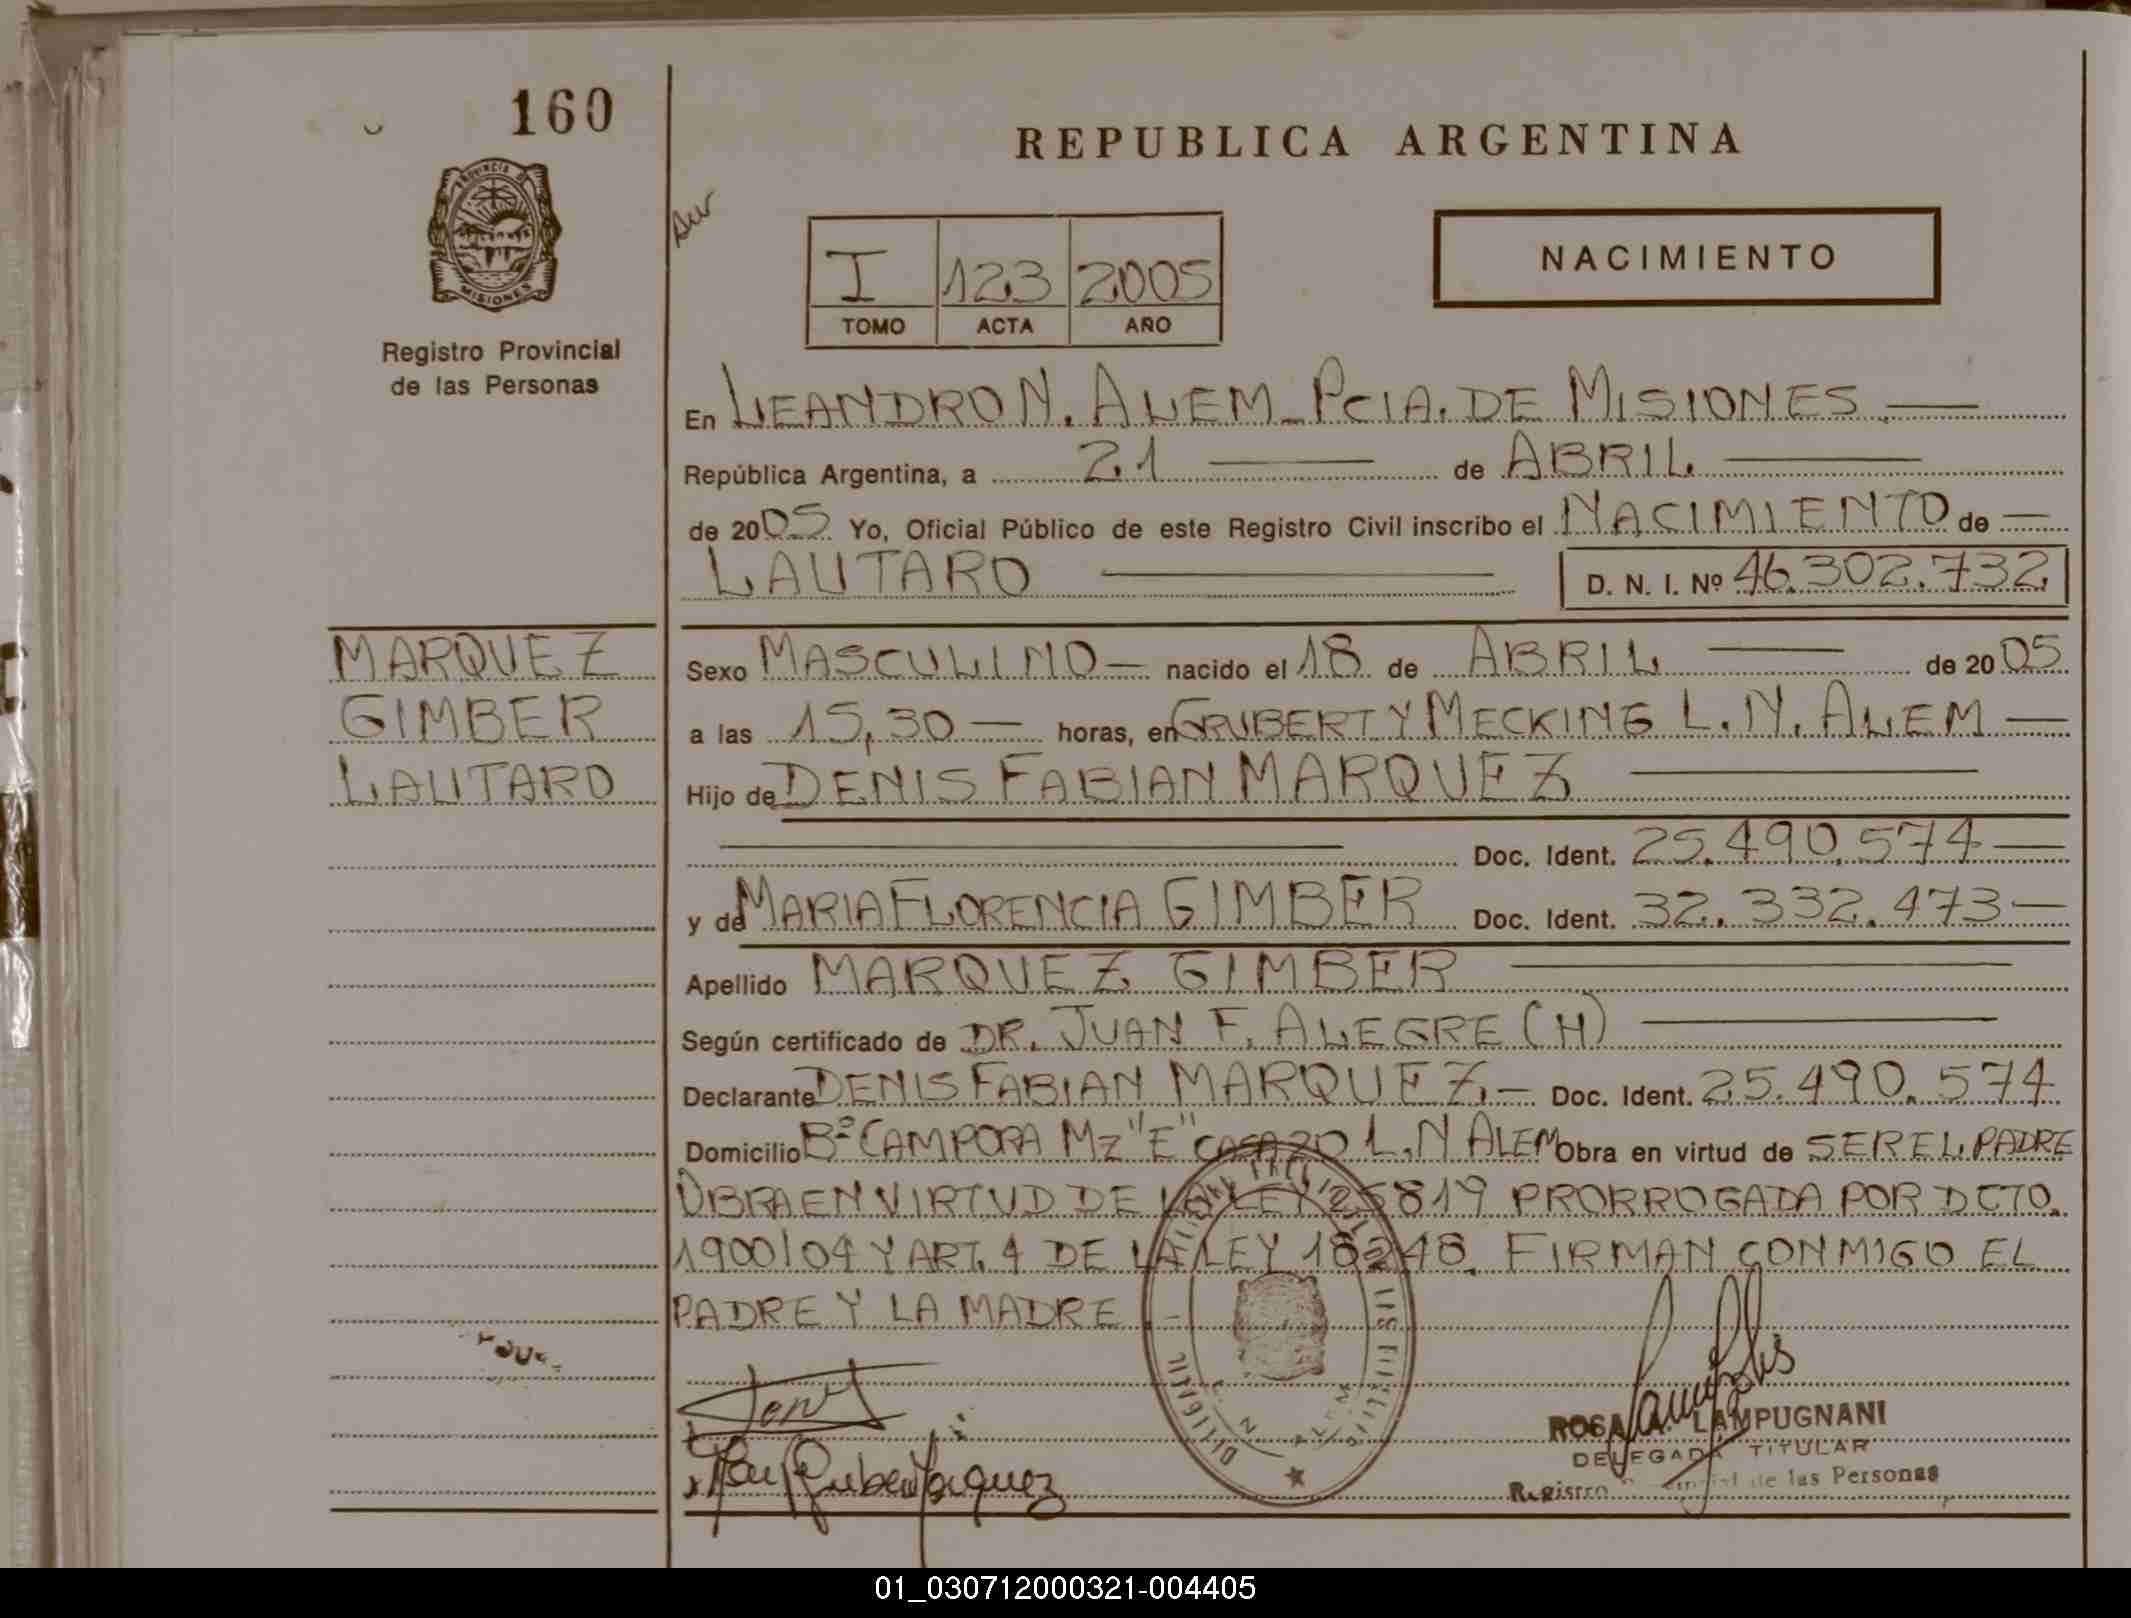 160
PROVINCIA DE
MISIONES
Registro Provincial
de las Personas
REPUBLICA ARGENTINA
I 123 2005
TOMO ACTA AÑO
NACIMIENTO
En LEANDRO N. ALEM - PCIA. DE MISIONES
República Argentina, a 21 de ABRIL
de 2005 Yo, Oficial Público de este Registro Civil inscribo el NACIMIENTO de
LAUTARO D. N. I. Nº 46.302.732
MARQUEZ
GIMBER
LAUTARO
Sexo MASCULINO nacido el 18 de ABRIL de 2005
a las 15,30 horas, en GRUBERT Y MECKING L. N. ALEM
Hijo de DENIS FABIAN MARQUEZ
Doc. Ident. 25.490.574
y de MARIA FLORENCIA GIMBER Doc. Ident. 32.332.473
Apellido MARQUEZ GIMBER
Según certificado de DR. JUAN F. ALEGRE (H)
Declarante DENIS FABIAN MARQUEZ. Doc. Ident. 25.490.574
Domicilio Bº CAMPORA MZ "E" CASA 20 L. N ALEM Obra en virtud de SER EL PADRE
OBRA EN VIRTUD DE LA LEY 25819 PRORROGADA POR DCTO.
1900/04 Y ART. 4 DE LA LEY 18248. FIRMAN CONMIGO EL
PADRE Y LA MADRE.
ROSA A. LAMPUGNANI
DELEGADA TITULAR
Registro Provincial de las Personas
01_030712000321-004405